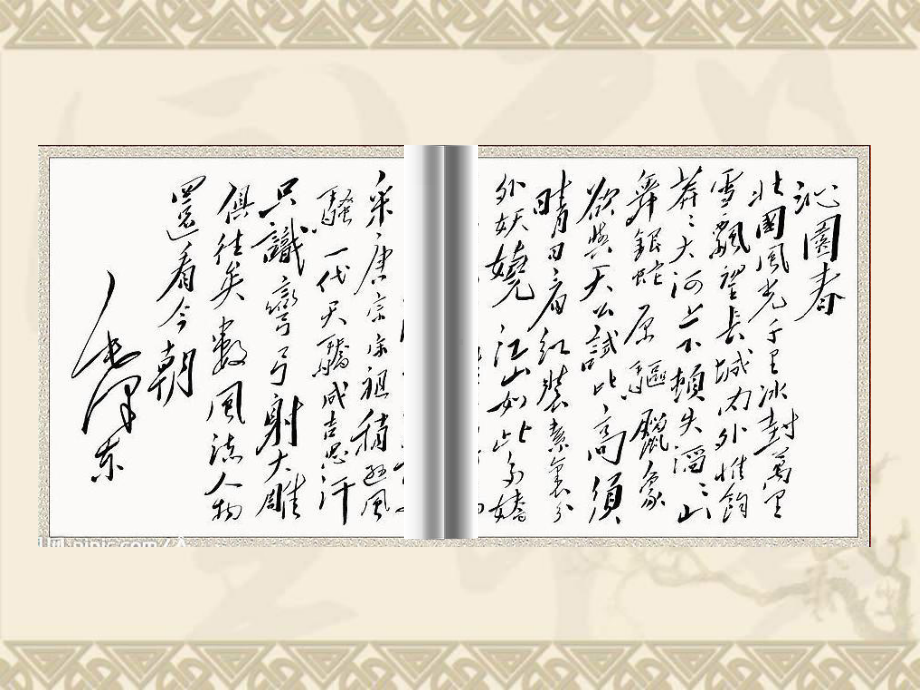 沁園春
北國風光千里冰封萬里
雪飄望長城内外惟餘
莽〻大河上下頓失滔〻山
舞銀蛇原驅臘象
欲與天公試比高須
晴日看紅裝素裹分
外妖嬈江山如此多嬌
采唐宗宋祖稍遜風
騷一代天驕成吉思汗
只識彎弓射大雕
俱往矣數風流人物
還看今朝
毛澤東